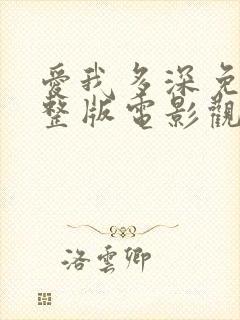 愛我多深免
整版電影觀
洛雲卿